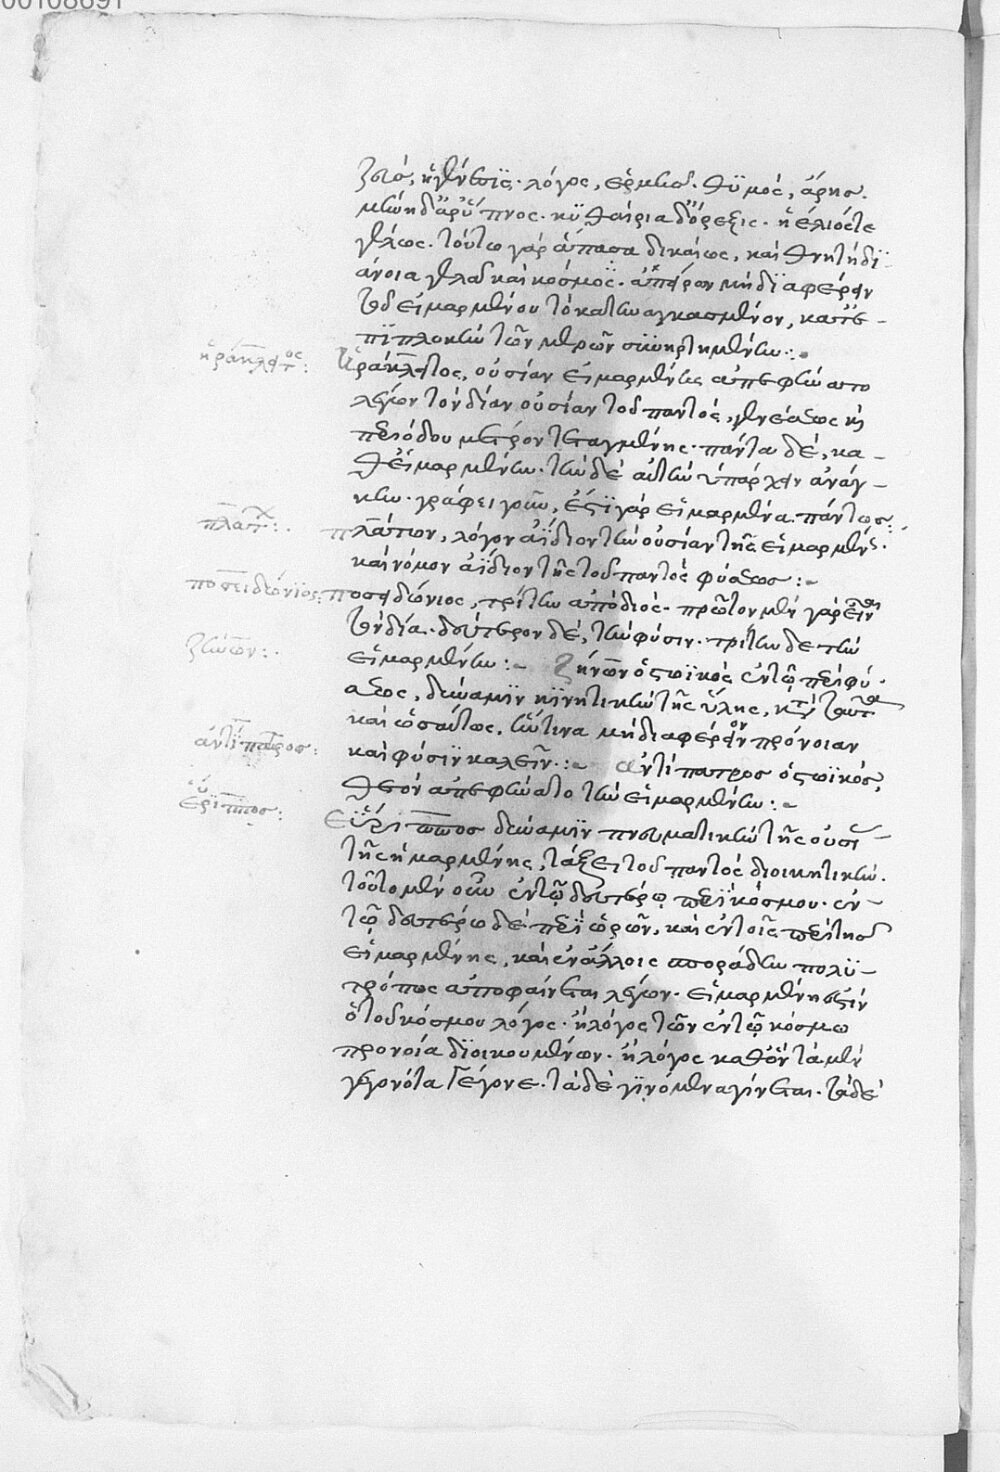 00108691
ζεύς, ἡ γένεσις. λόγος, ἑρμῆς. θϋμὸς, ἄρης.
μήνη δ' ἂρ' ὕπνος. κϋθαίρια δ' ὄρεξις. ἠέλιός τε
γέλως. τούτω γὰρ ἅπασα δικαίως, καὶ θνητὴ δϊ-
άνοια γελᾶ καὶ κόσμος. ἀπείρων μὴ δϊαφέρειν
τοῦ εἱμαρμένου τὸ κατηναγκασμένον, κατ' ἐ-
πϊπλοκὴν τῶν μερῶν σϋνηρτημένην:-
ἡράκλειτος:
Ἡράκλειτος, οὐσίαν εἱμαρμένης ἀπεφήνατο
λέγων τὸν διὰν οὐσίαν τοῦ παντὸς, γενέσεως ἢ
περιόδου μέτρον τεταγμένης. πάντα δὲ, κα-
θ' εἱμαρμένην. τὴν δὲ αὐτὴν ὑπάρχειν ἀνάγ-
κην. γράφει γοῦν, ἔστϊ γὰρ εἱμαρμένα πάντως:
πλάτων:
πλάτων, λόγον ἀΐδιον τὴν οὐσίαν τῆς εἱμαρμένης.
καὶ νόμον ἀΐδιον τῆς τοῦ παντὸς φύσεως:-
ποσειδώνϊος:
ποσειδώνιος, τρίτην ἀπὸ διός. πρῶτον μὲν γὰρ εἶναι
τὸν δία. δεύτερον δὲ, τὴν φύσιν. τρίτην δὲ τὴν
ζήνων:
εἱμαρμένην:- Ζήνων ὁ στωϊκὸς ἐν τῷ περὶ φύ-
σεως, δύναμϊν κϊνητικὴν τῆς ὕλης, κατὰ ταυτὰ
καὶ ὡσαύτως, ἥντινα μὴ διαφέρειν πρόνοιαν
ἀντίπατρος:
καὶ φύσϊν καλεῖν:- ἀντίπατρος ὁ στωϊκός,
θεὸν ἀπεφήνατο τὴν εἱμαρμένην:-
εὕριππος:
Εὕριππος δύναμϊν πνευματικὴν τῆς οὐσί
τῆς εἱμαρμένης, τάξει τοῦ παντὸς διοικητικήν.
τοῦτο μὲν οὖν ἐν τῷ δευτέρῳ περὶ κόσμου. ἐν
τῷ δευτέρω δὲ περὶ ὡρῶν, καὶ ἐν τοῖς περὶ τῆς
εἱμαρμένης, καὶ ἐν ἄλλοις σποράδην πολϋ-
τρόπως ἀποφαίνεται λέγων. εἱμαρμένη ἐστὶν
ὁ τοῦ κόσμου λόγος. ἢ λόγος τῶν ἐν τῷ κόσμω
προνοία δϊοικουμένων. ἢ λόγος καθ' ὃν τὰ μὲν
γεγονότα γέγονε. τὰ δὲ γϊνόμενα γίνεται. τὰ δὲ